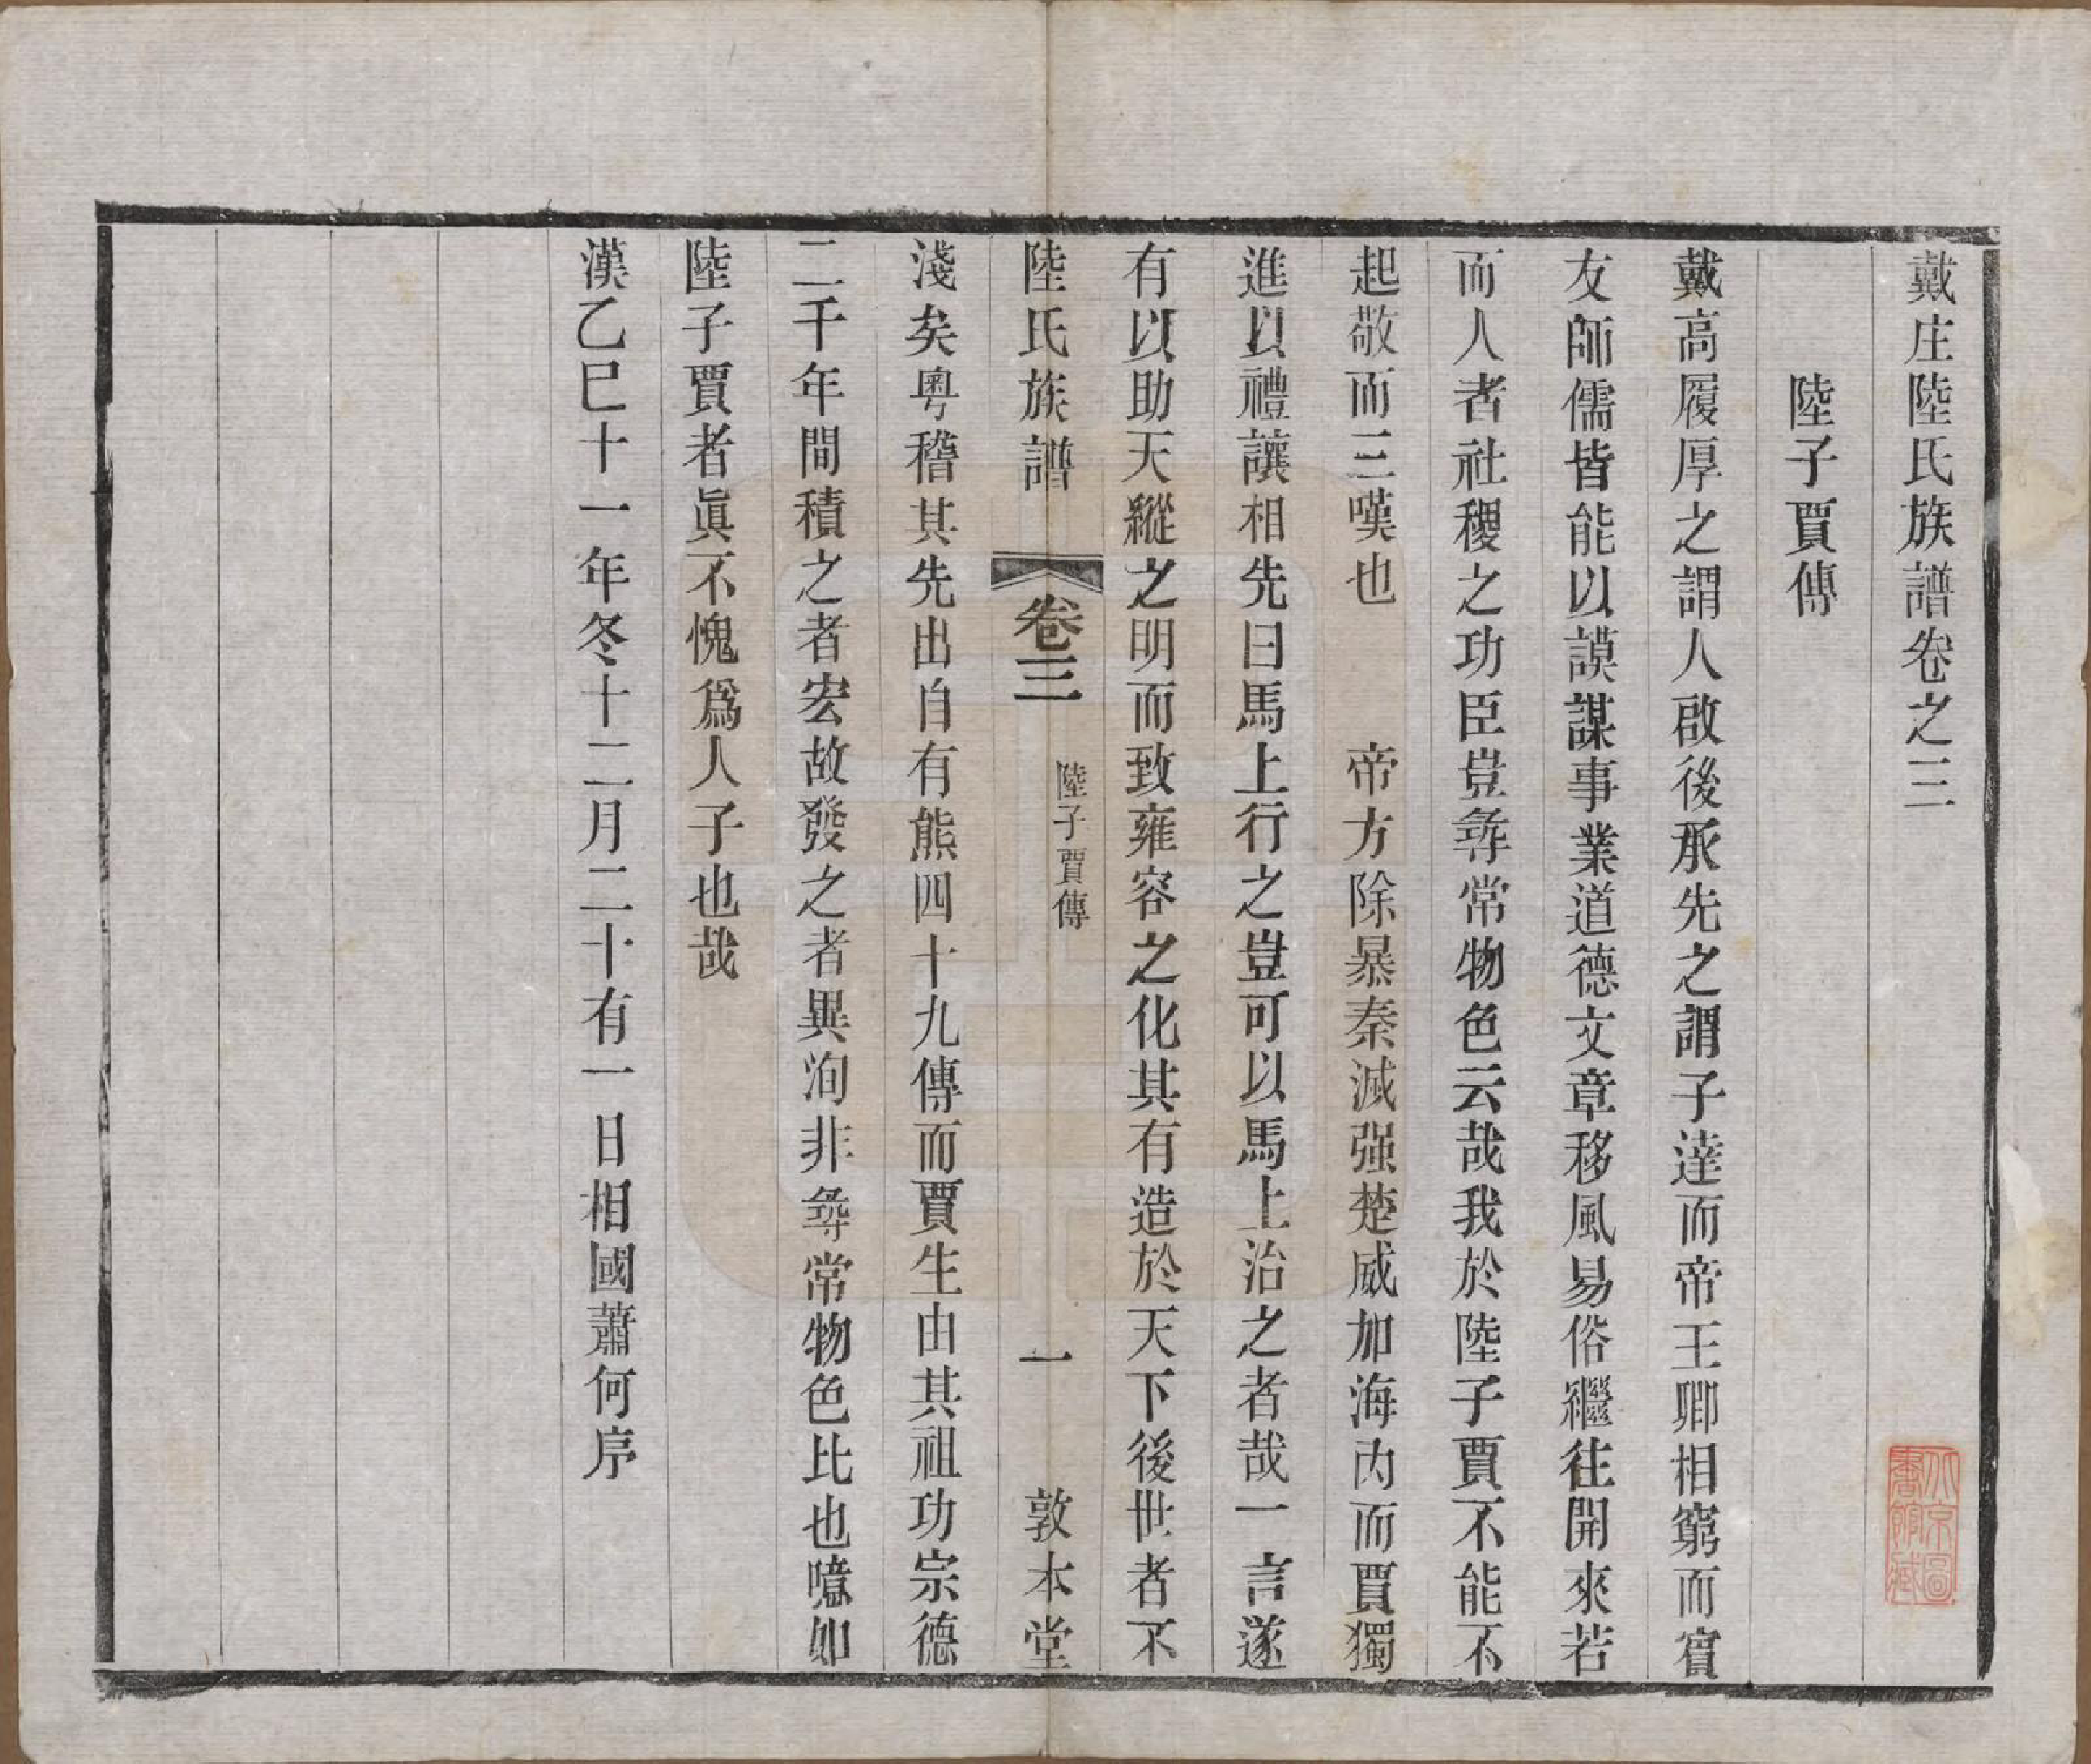 戴庄陸氏族譜卷之三
陸子賈傳
戴高履厚之謂人啟後承先之謂子達而帝王卿相窮而賓
友師儒皆能以謨謀事業道德文章移風易俗繼往開來若
而人者社稷之功臣豈尋常物色云哉我於陸子賈不能不
起敬而三嘆也　　帝方除暴秦滅强楚威加海內而賈獨
進以禮讓相先曰馬上行之豈可以馬上治之者哉一言遂
有以助天縱之明而致雍容之化其有造於天下後世者不
陸氏族譜　卷三　陸子賈傳　一　敦本堂
淺矣粵稽其先出自有熊四十九傳而賈生由其祖功宗德
二千年間積之者宏故發之者異洵非尋常物色比也噫如
陸子賈者眞不愧爲人子也哉
漢乙巳十一年冬十二月二十有一日相國蕭何序
北京圖
書館藏